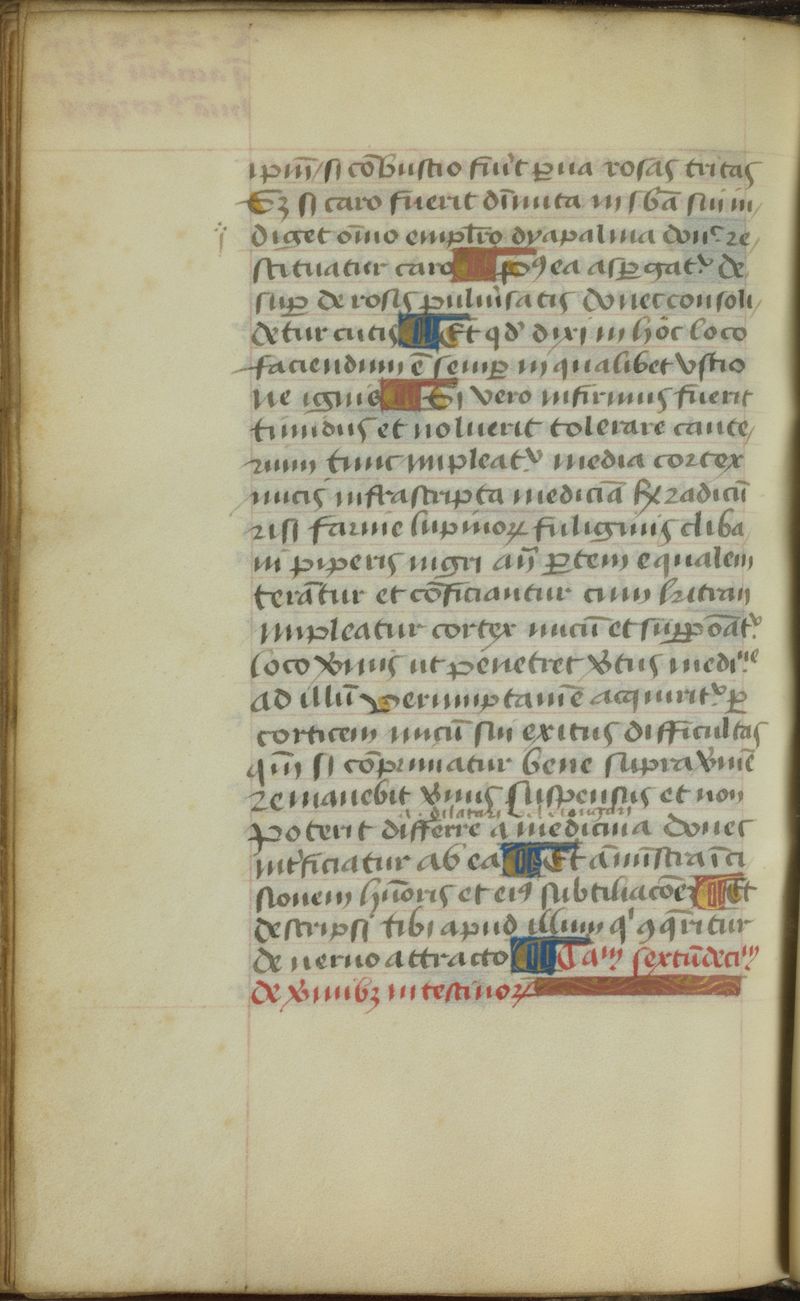 ipm̄ / si cōbustio fuūt ꝑ ua rosas tritas
Eꝫ si caro fuerit dīmuta in sb̄a sui in/
diget oīno emplr̄o dyapalma donᶜ re/
stituatur caro pꝰea asꝑgatᵘ de
suꝑ de rosis puluīsatis donec consoli/
detur cutis Et qdˀ dixi in hōc loco
faciendum ē semꝑ in qualibet vstio
ne ignis Si vero infirmus fuerit
timidus et noluerit tolerare caute/
rium tunc impleatᵘ media cortex
nucis infrascripta mediciā ℞ radicū
risi farine lupinoꝝ fuliginis cliba
ni piperis nigri an̄ ꝑtem equalem
terātur et cōficiantur cum kitran
impleatur cortex nucū et suppōatᵘ
loco v̄mis ut penetret v̄tus mediⁿᵉ
ad illū Verumptamē acquiritᵘ ꝑ
corticem nucū sui exitus difficultas
qm̄ si cōprimatur bene supra v̄mē
remanebit v̄mis suspensus et non
a dilatari vel elongari
poterit differre a medicina donec
int̄ficiatur ab ea Et āmīstra īci
sionem hūoris et eiꝰ subtiliacōeꝫ Et
descripsi tibi apud illum qⁱ ꝯq̄ritur
de neruo attracto Caᵐ sextūdeciᵐ
de v̄mibꝫ intestinoꝝ